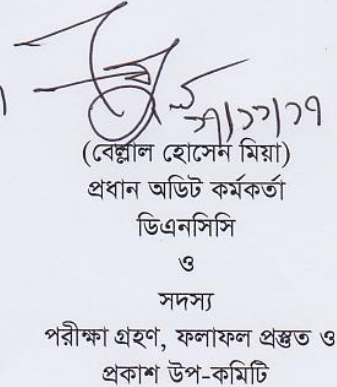 (বেল্লাল হোসেন মিয়া)
প্রধান অডিট কর্মকর্তা
ডিএনসিসি
ও
সদস্য
পরীক্ষা গ্রহণ, ফলাফল প্রস্তুত ও
প্রকাশ উপ-কমিটি